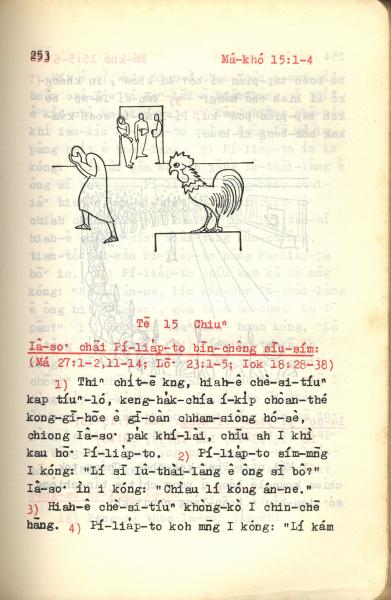 253
Má-khó 15:1-4
Tē 15 Chiuⁿ
Iâ-so· chāi Pí-lia̍p-to bīn-chêng siū-sím:
(Má 27:1-2,11-14; Lō· 23:1-5; Iok 18:28-38)
1) Thiⁿ chit-ē kng, hiah-ê chè-si-tiúⁿ
kap tiúⁿ-ló, keng-ha̍k-chíá í-ki̍p choân-thé
kong-gī-hōe ê gī-oân chham-siông hó-sè,
chiong Iâ-so· pa̍k khí-lâi, chiū ah I khì
kau hō· Pí-lia̍p-to. 2) Pí-lia̍p-to sím-mn̄g
I kóng: "Lí sī Iû-thài-lâng ê ông sī bô?"
Iâ-so· ìn i kóng: "Chiàu lí kóng án-ne."
3) Hiah-ê chè-si-tiúⁿ khòng-kò I chin-chē
hāng. 4) Pí-lia̍p-to koh mn̄g I kóng: "Lí kám